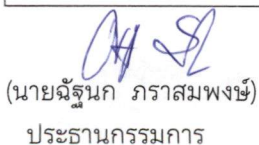 (นายฉัฐนก ภราสมพงษ์)
ประธานกรรมการ